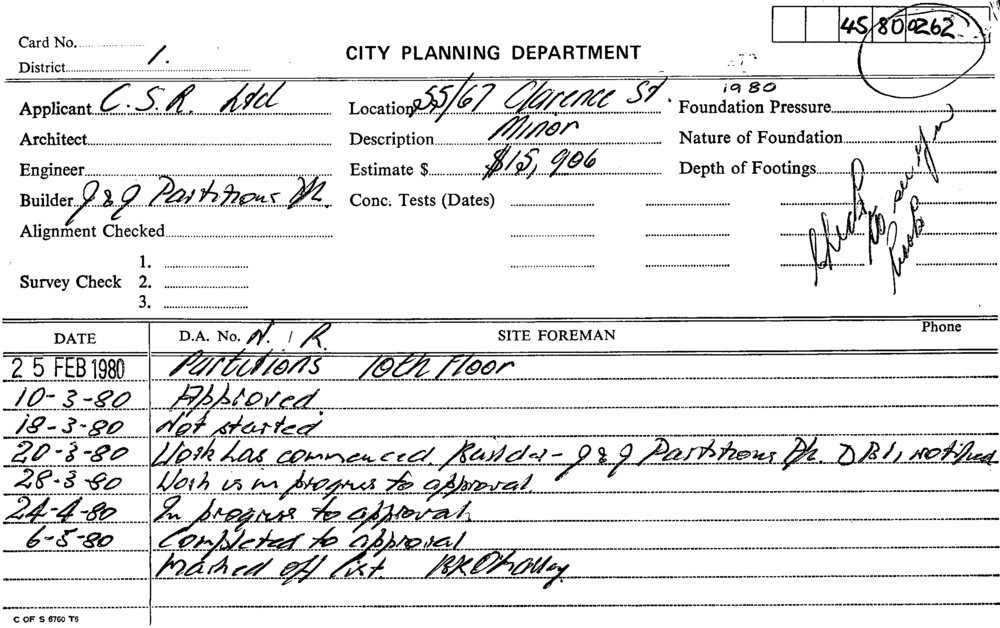 45 80 0262
Card No.
CITY PLANNING DEPARTMENT
District 1.
1980
Applicant C.S.R. Ltd Location 55/67 Clarence St. Foundation Pressure
Architect Description Minor Nature of Foundation
Engineer Estimate $ $15,906 Depth of Footings
Builder J & J Partitions P/L. Conc. Tests (Dates)
Alignment Checked
1.
Survey Check 2.
3.
DATE D.A. No. N. / R. SITE FOREMAN Phone
25 FEB 1980 Partitions 10th Floor
10-3-80 Approved.
18-3-80 Not started
20-3-80 Work has commenced. Builder - J & J Partitions P/L. DBI, notified
28-3-80 Work is in progress to approval.
24-4-80 In progress to approval.
6-5-80 Completed to approval
Marked off list.
C OF S 6760 T6